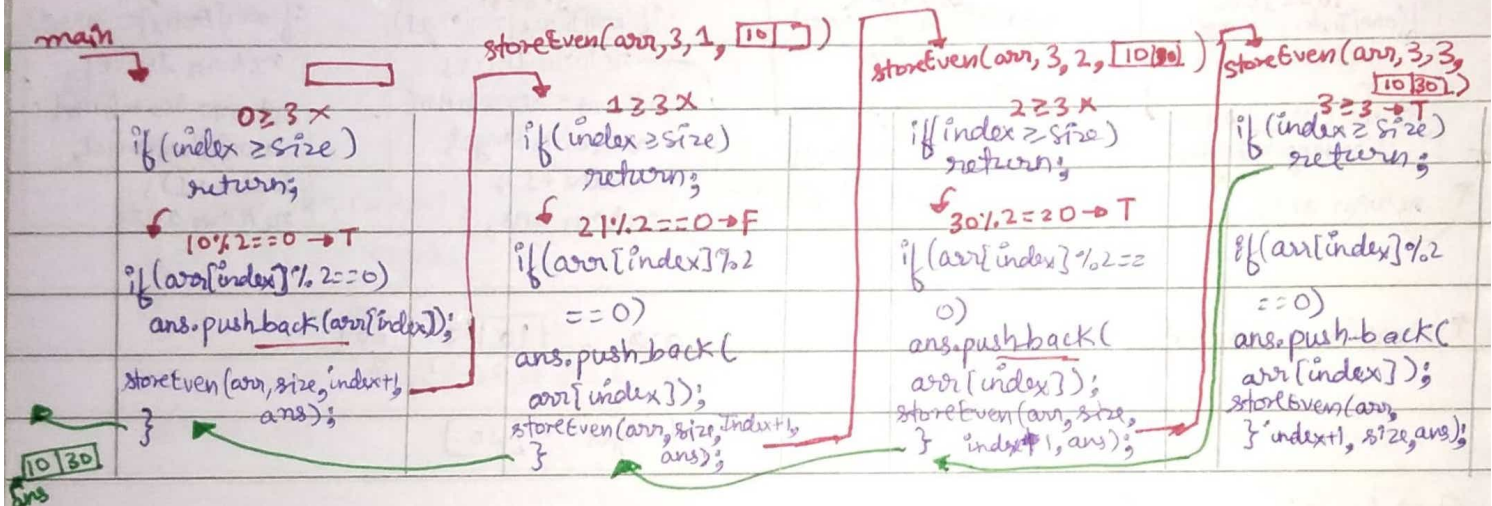 main
0 ≥ 3 ✗
if(index ≥ size)
return;
10%2==0 → T
if(arr[index]%2==0)
ans.push_back(arr[index]);
storeEven(arr, size, index+1,
ans);
}
10 30
Ans
storeEven(arr, 3, 1, 10 )
1 ≥ 3 ✗
if(index ≥ size)
return;
21%2==0 → F
if(arr[index]%2
==0)
ans.push_back(
arr[index]);
storeEven(arr, size, Index+1,
ans);
}
storeEven(arr, 3, 2, 10 30 )
2 ≥ 3 ✗
if index ≥ size)
return;
30%2==0 → T
if(arr[index]%2==
0)
ans.push_back(
arr[index]);
storeEven(arr, size,
} index+1, ans);
storeEven(arr, 3, 3,
10 30 )
3 ≥ 3 → T
if(index ≥ size)
return;
if(arr[index]%2
==0)
ans.push_back(
arr[index]);
storeEven(arr,
} index+1, size, ans);